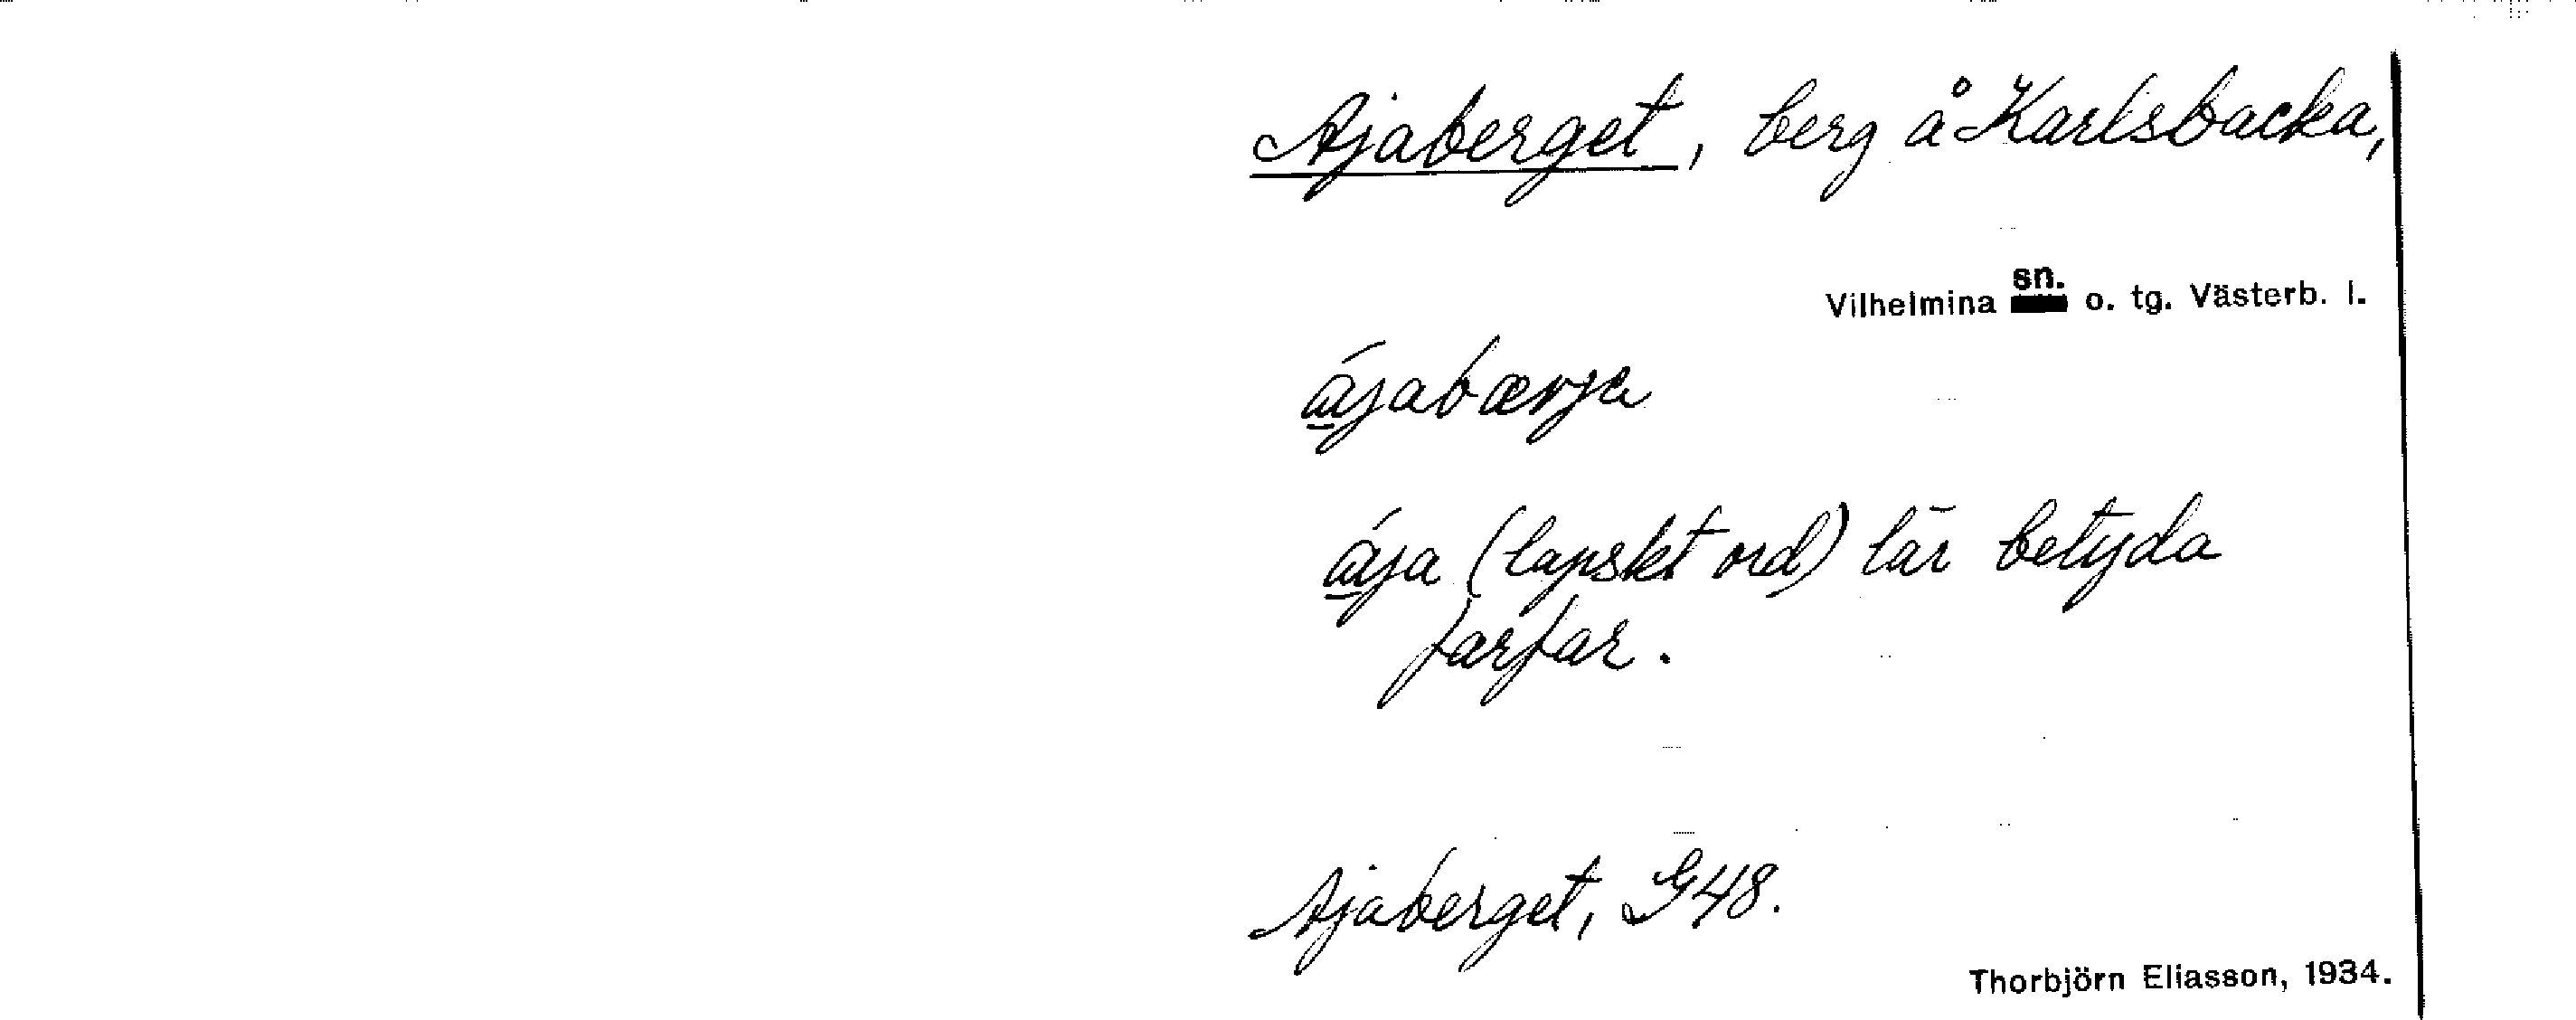 Ajaberget, berg å Karlsbacka,
Vilhelmina sn. o. tg. Västerb. l.
ájabærja
ája (lapskt ord) lär betyda
farfar.
Ajaberget, G48.
Thorbjörn Eliasson, 1934.